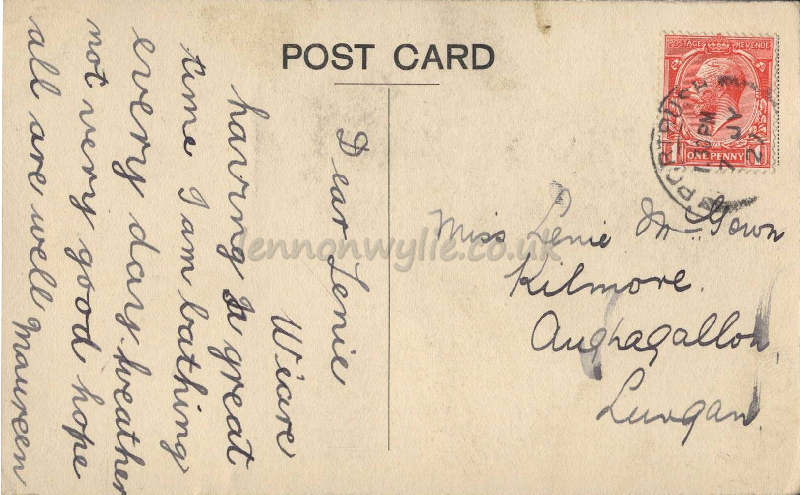 POST CARD
Dear Lenie
We are
having a great
time I am bathing
every day weather
not very good hope
all are well Maureen
POSTAGE REVENUE
ONE PENNY
PORTRUSH
PM
JY
Miss Lenie Mc Gown
Kilmore.
Aughagallon
Lurgan.
lennonwylie.co.uk